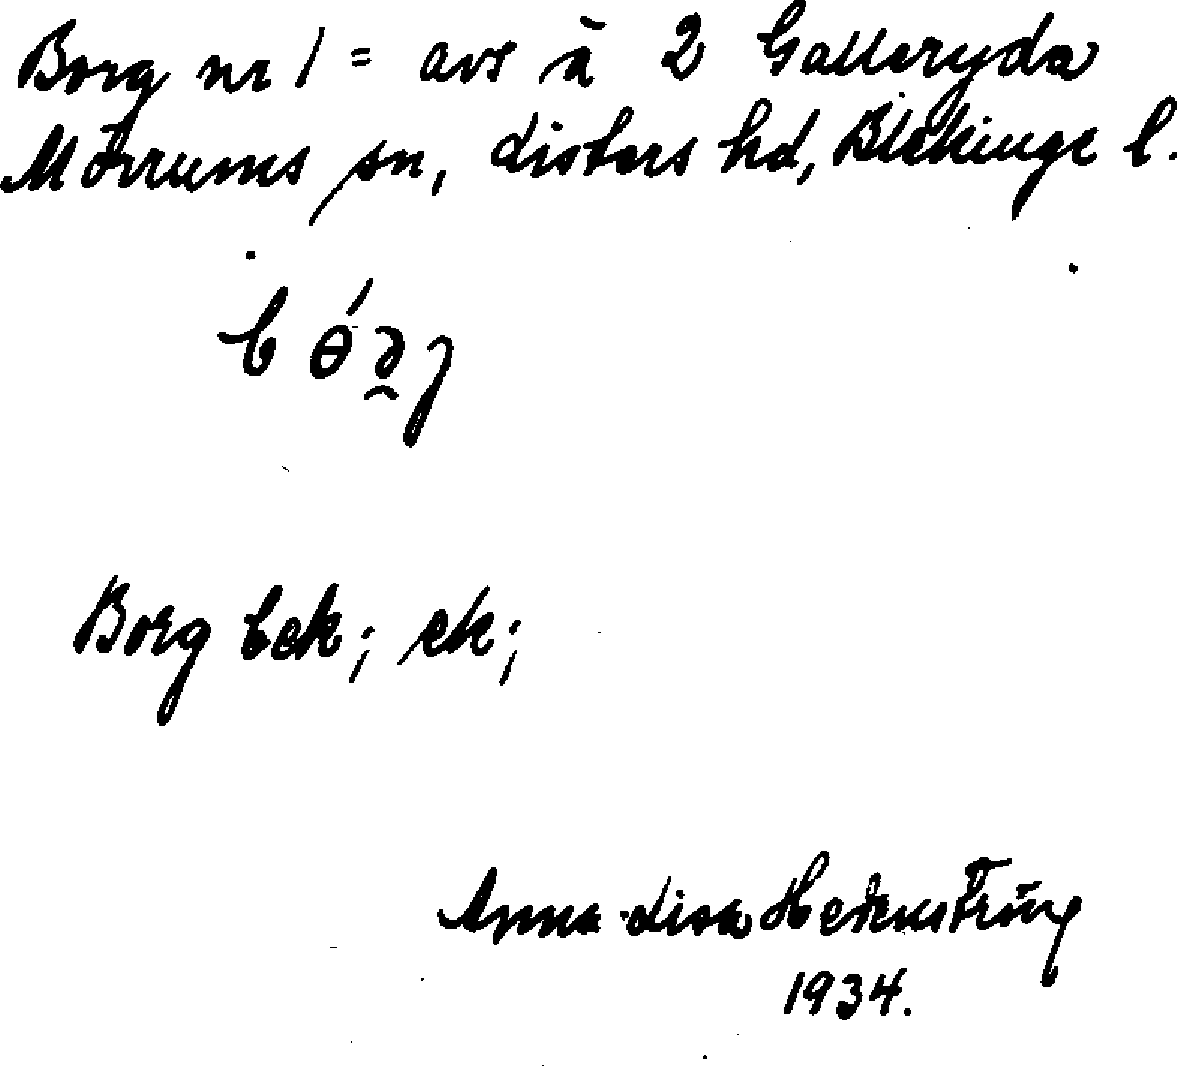 Borg nr 1 = avs å 2 Galleryda
Mörrums sn, Listers hd, Blekinge l.
bǿə̯ꭚ
Borg bek; ek;
Anna-Lisa Hedenström
1934.